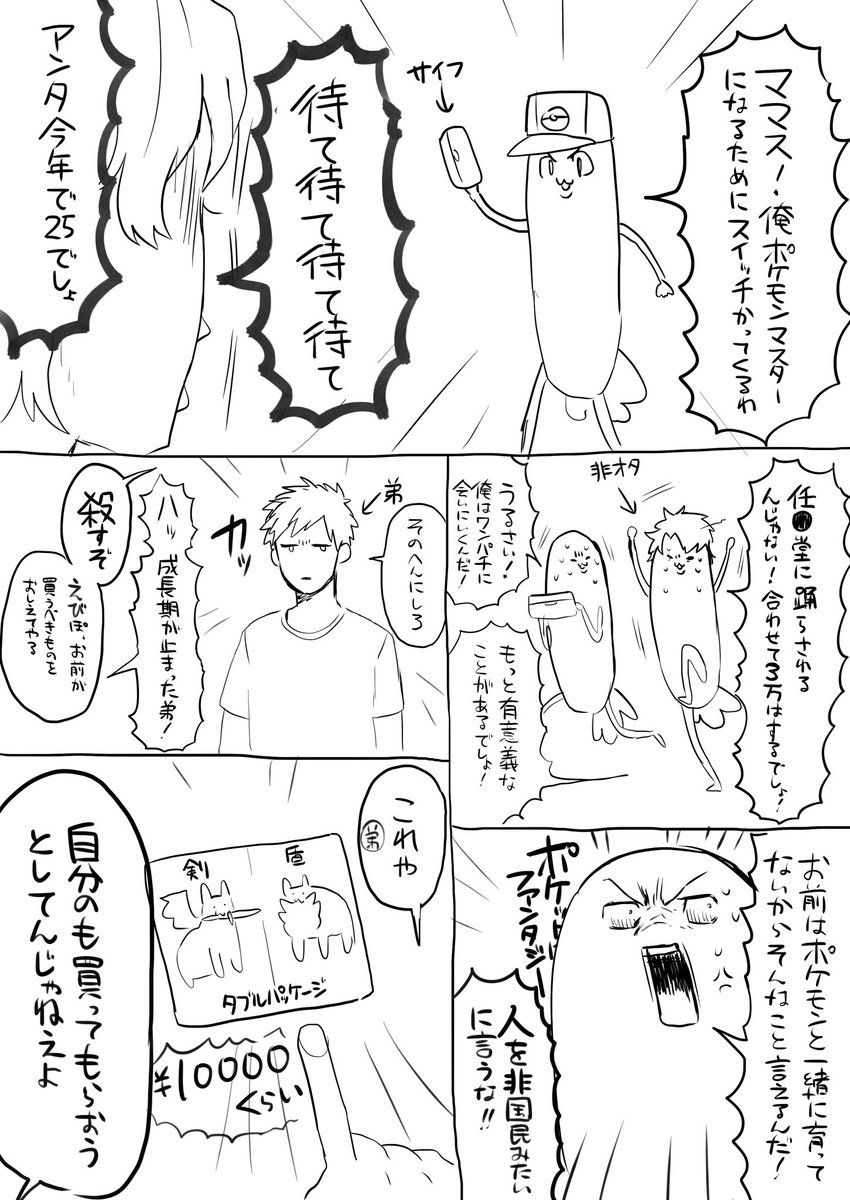 ママス!俺ポケモンマスター
になるためにスイッチかってくるわ
サイフ
待て待て待て待て
アンタ今年で25でしょ
任●堂に踊らされる
んじゃない!合わせて3万はするでしょ!
非オタ
うるさい!
俺はワンパチに
会いにいくんだ!
もっと有意義な
ことがあるでしょ!
そのへんにしろ
弟
カッ
ハッ
成長期が止まった弟!
殺すぞ
えびぽ、お前が
買うべきものを
おしえてやる
お前はポケモンと一緒に育って
ないからそんなこと言えるんだ!
ポケットファンタジー
人を非国民みたい
に言うな!!
これや
弟
盾
剣
タブルパッケージ
¥10000
くらい
自分のも買ってもらおう
としてんじゃねえよ